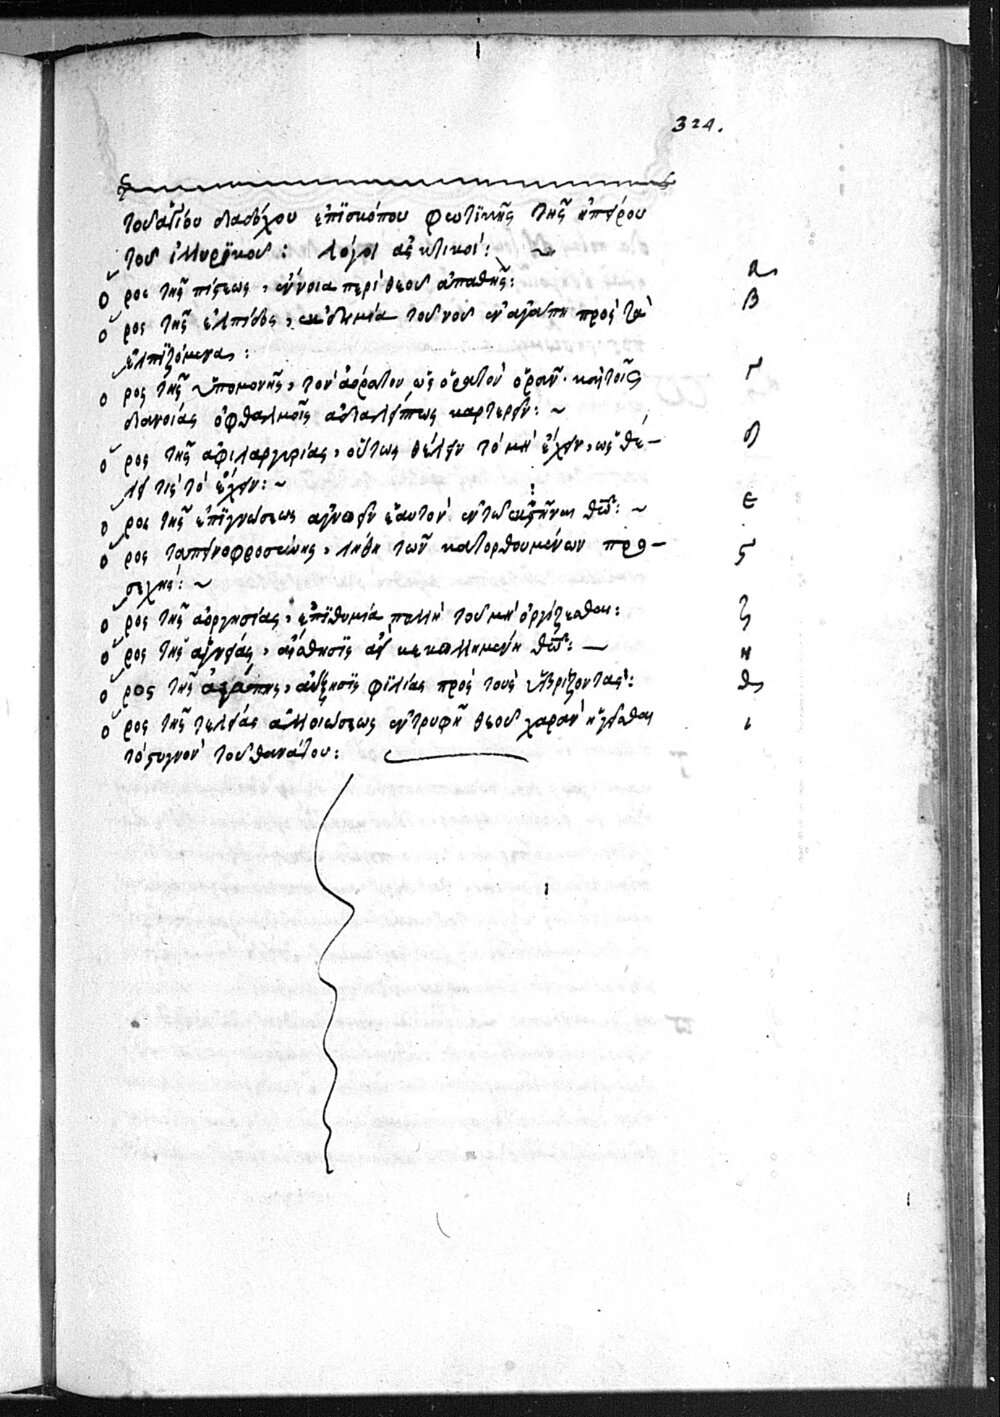 324.
τοῦ ἁγίου διαδόχου ἐπϊσκόπου φωτϊκῆς τῆς ἠπείρου
τοῦ ἰλλυρϊκοῦ: λόγοι ἀσκιτικοί: ~
Ὅρος τῆς πίστεως, ἔννοια περὶ θεοῦ ἀπαθής: α
Ὅρος τῆς ἐλπίδος, ἐκδημία τοῦ νοῦ ἐν ἀγάπη πρὸς τὰ β
ἐλπϊζόμενα:
Ὅρος τῆς ὑπομονῆς, τὸν ἀόρατον ὡς ὁρατὸν ὁρᾶν· καὶ τοῖς γ
διανοίας ὀφθαλμοῖς ἀδιαλείπτως καρτερεῖν: ~
Ὅρος τῆς ἀφιλαργυρίας, οὕτως θέλειν τὸ μὴ ἔχειν, ὡς θέ- δ
λει τὶς τὸ ἔχειν: ~
Ὅρος τῆς ἐπϊγνώσεως ἀγνοεῖν ἑαυτὸν ἐν τῶ ἐκστῆναι θεῶ: ~ ε
Ὅρος ταπεινοφροσύνης, λήθη τῶν κατορθουμένων προ- ς
σεχής: ~
Ὅρος τῆς ἀοργησίας, ἐπϊθυμία πολλὴ τοῦ μὴ ὀργίζεσθαι: ζ
Ὅρος τῆς ἁγνείας, αἴσθησϊς ἀεὶ κεκολλημένη θεῶ: — η
Ὅρος τῆς ἀγάπης, αὔξησϊς φϊλίας πρὸς τοὺς ὑβρίζοντας: θ
Ὅρος τῆς τελείας ἀλλοιώσεως ἐν τρυφῆ θεοῦ χαρὰν ἡγεῖσθαι ι
τὸ στυγνὸν τοῦ θανάτου: